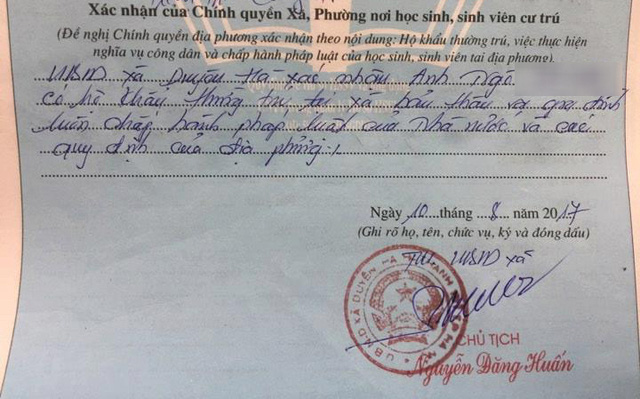 Xác nhận của Chính quyền Xã, Phường nơi học sinh, sinh viên cư trú
(Đề nghị Chính quyền địa phương xác nhận theo nội dung: Hộ khẩu thường trú, việc thực hiện
nghĩa vụ công dân và chấp hành pháp luật của học sinh, sinh viên tại địa phương).
UBND xã Duyên Hà xác nhận Anh Ngô
có hộ khẩu thường trú tại xã bản thân và gia đình
luôn chấp hành pháp luật của nhà nước và các
quy định của địa phương.
Ngày 10 tháng 8 năm 2017
(Ghi rõ họ, tên, chức vụ, ký và đóng dấu)
TM UBND xã
CHỦ TỊCH
Nguyễn Đăng Huấn